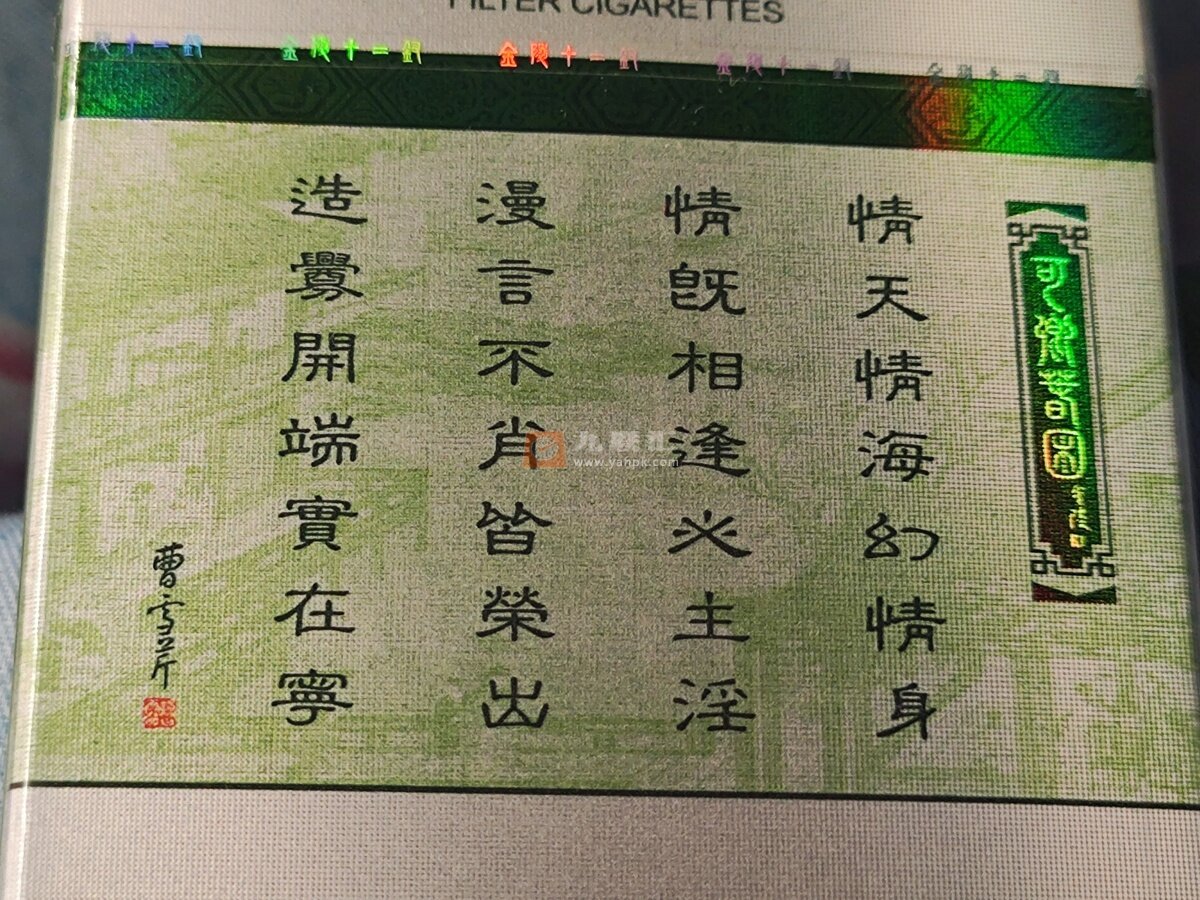 FILTER CIGARETTES
金陵十二釵 金陵十二釵 金陵十二釵 金陵十二釵
情天情海幻情身
情既相逢必主淫
漫言不肖皆榮出
造釁開端實在寧
曹雪芹
www.yahpk.com